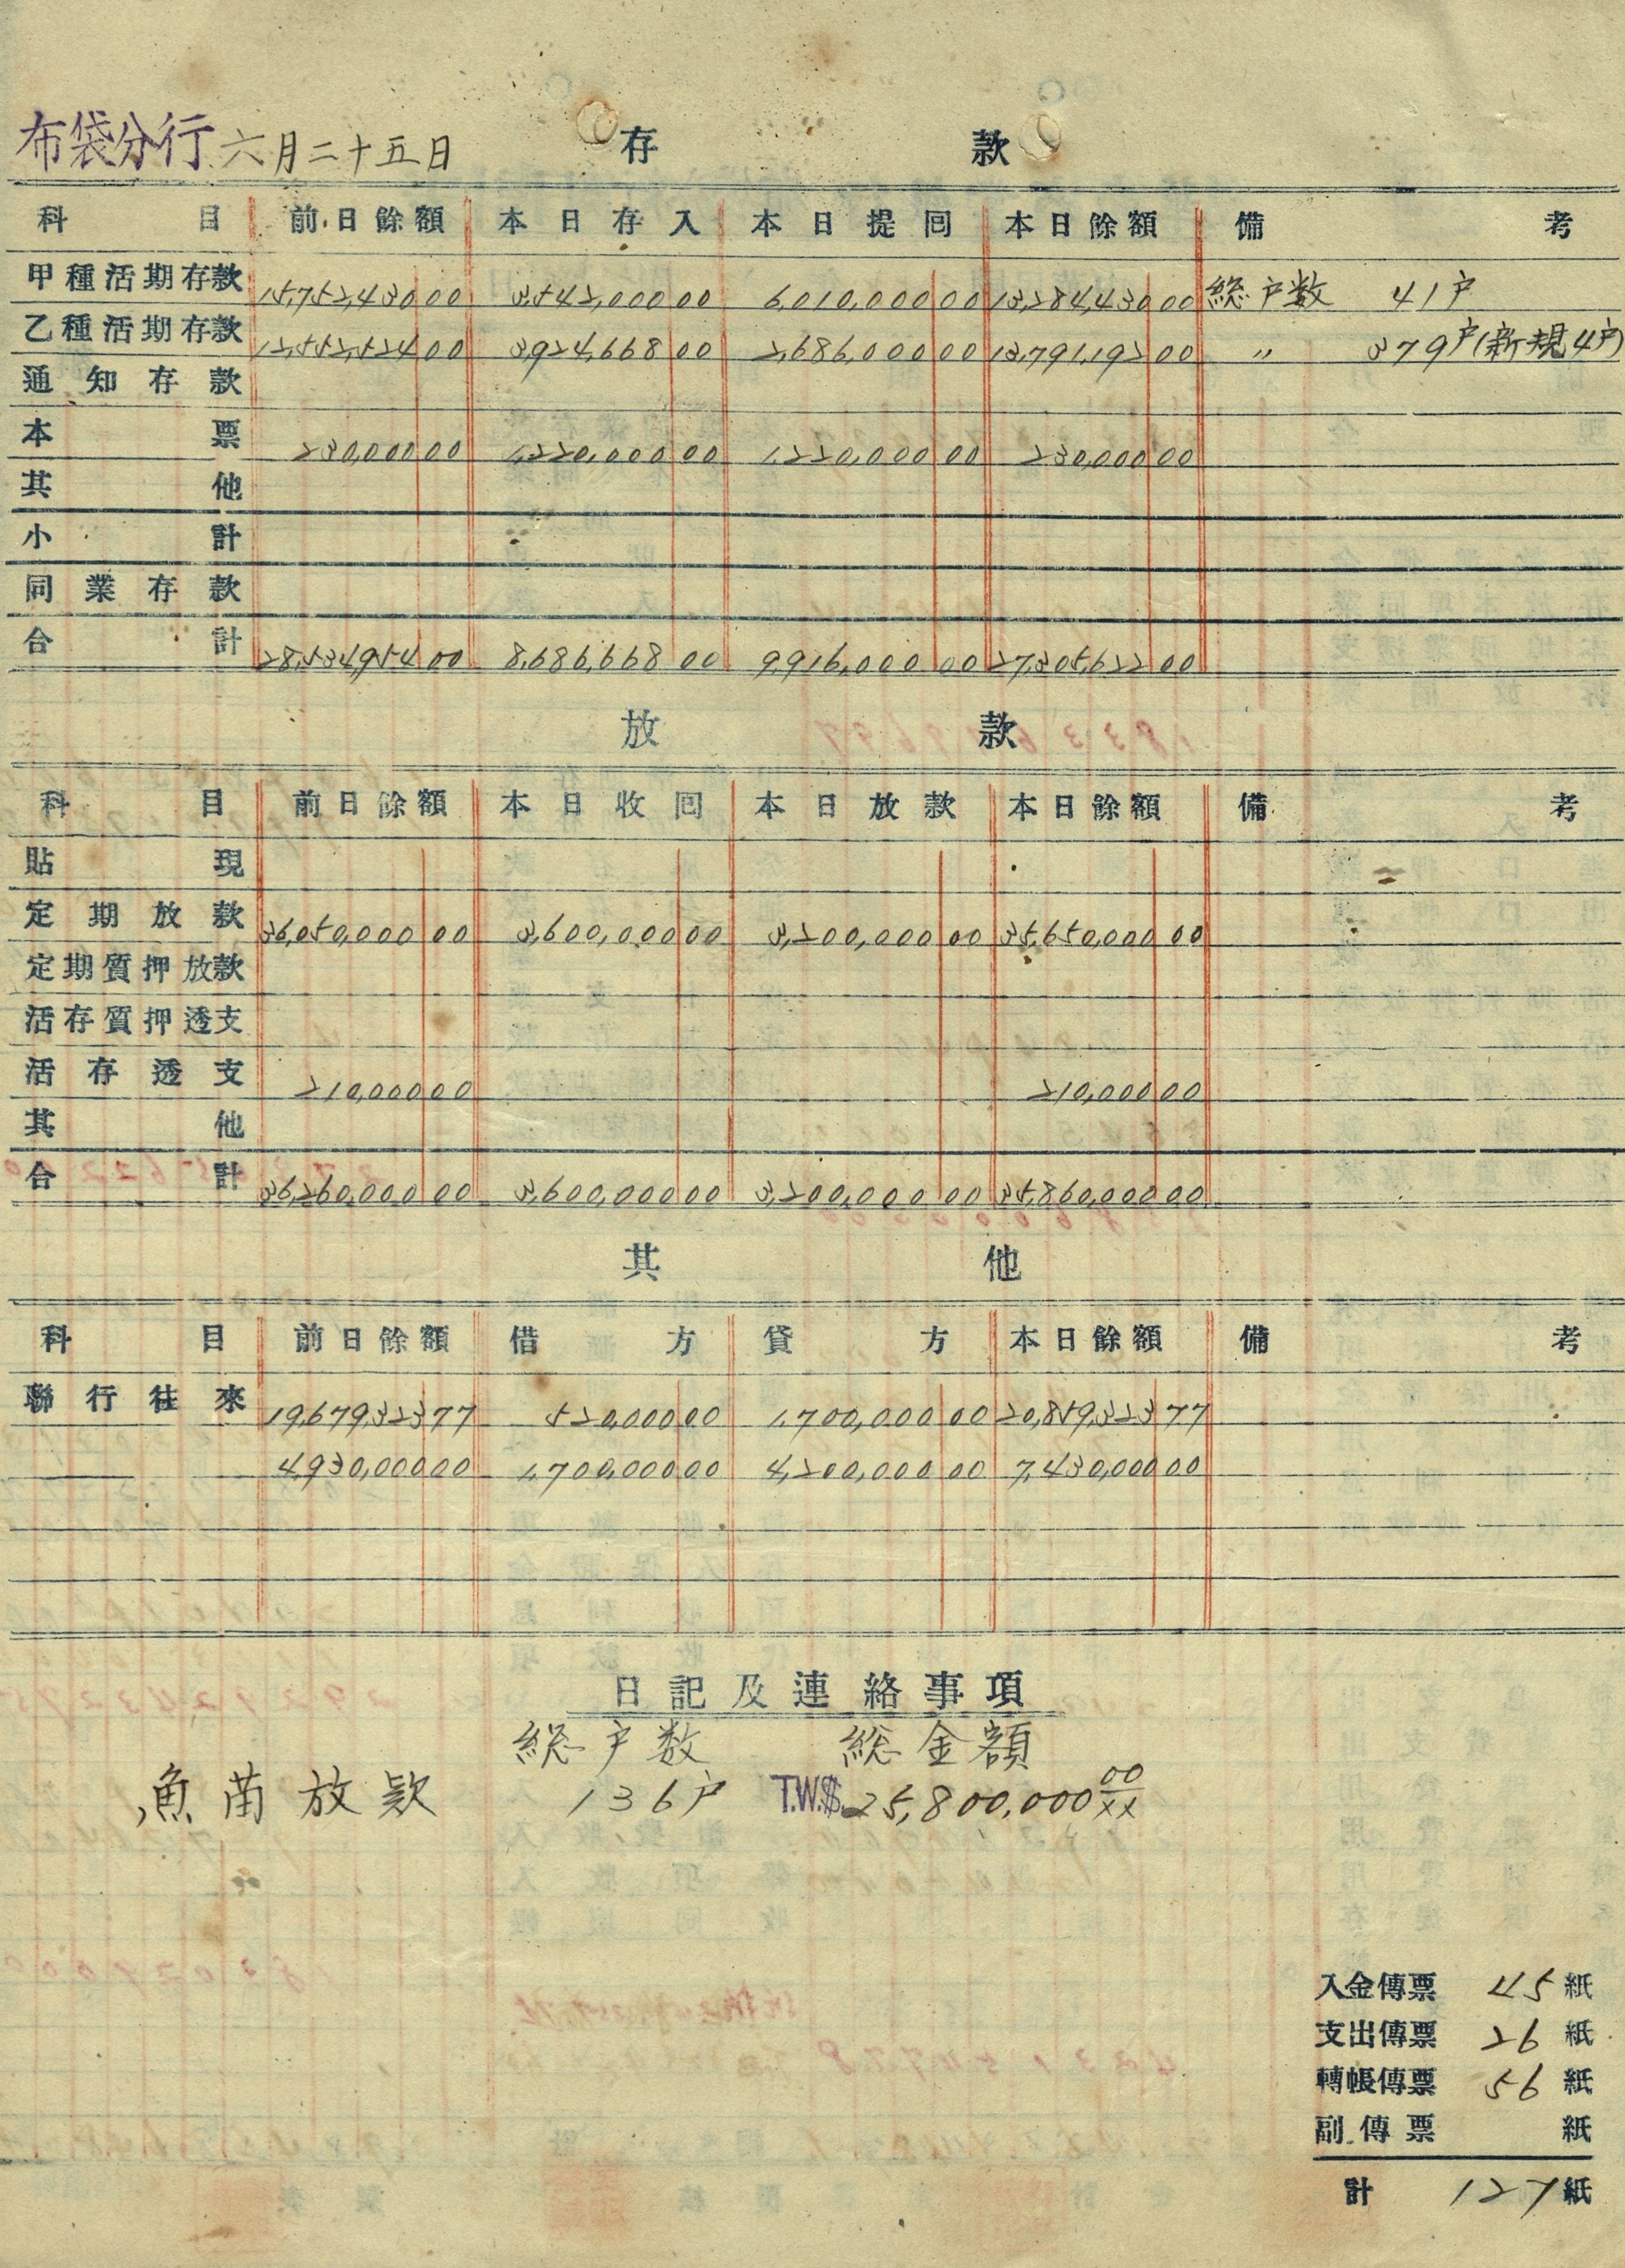 布袋分行 六月二十五日 存款
科目 前日餘額 本日存入 本日提囘 本日餘額 備考
甲種活期存款 15,752,430 00 3,542,000 00 6,010,000 00 13,284,430 00 総户数 41户
乙種活期存款 12,552,524 00 3,924,668 00 2,686,000 00 13,791,192 00 〃 379户(新規4户)
通知存款
本票 230,000 00 1,220,000 00 1,220,000 00 230,000 00
其他
小計
同業存款
合計 28,534,954 00 8,686,668 00 9,916,000 00 27,305,622 00
放款
科目 前日餘額 本日收囘 本日放款 本日餘額 備考
貼現
定期放款 36,050,000 00 3,600,000 00 3,200,000 00 35,650,000 00
定期質押放款
活存質押透支
活存透支 210,000 00 210,000 00
其他
合計 36,260,000 00 3,600,000 00 3,200,000 00 35,860,000 00
其他
科目 前日餘額 借方 貸方 本日餘額 備考
聯行往來 19,679,323 77 520,000 00 1,700,000 00 20,859,323 77
4,930,000 00 1,700,000 00 4,200,000 00 7,430,000 00
日記及連絡事項
総户数 総金額
魚苗放欵 136户 T.W.$. 25,800,000 00/xx
入金傳票 45 紙
支出傳票 26 紙
轉帳傳票 56 紙
副傳票 紙
計 127 紙